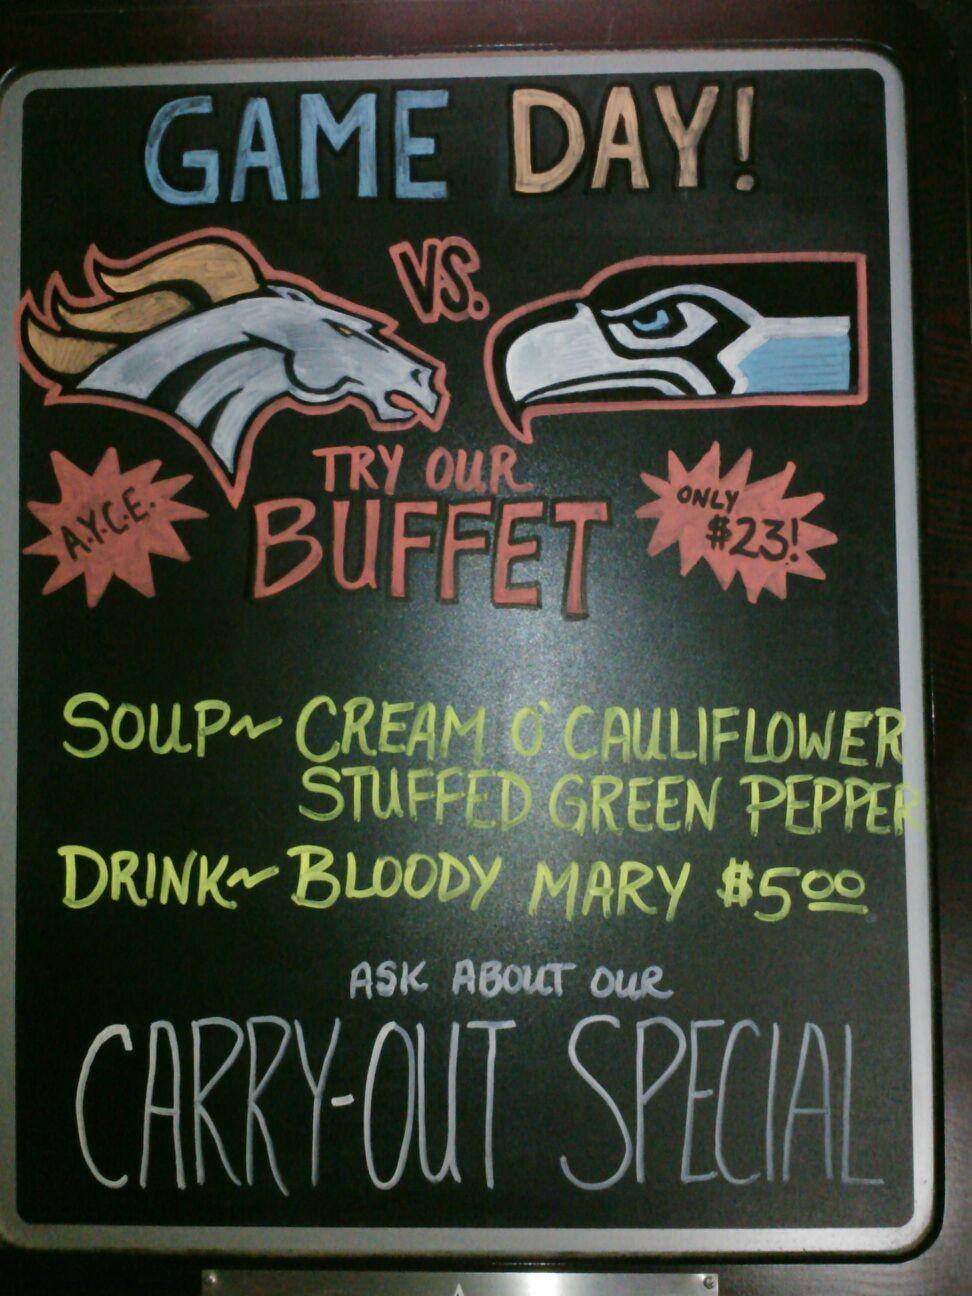 GAME DAY!
VS.
TRY OUR
BUFFET
A.Y.C.E.
ONLY
$23!
SOUP~ CREAM O' CAULIFLOWER
STUFFED GREEN PEPPER
DRINK~ BLOODY MARY $500
ASK ABOUT OUR
CARRY-OUT SPECIAL